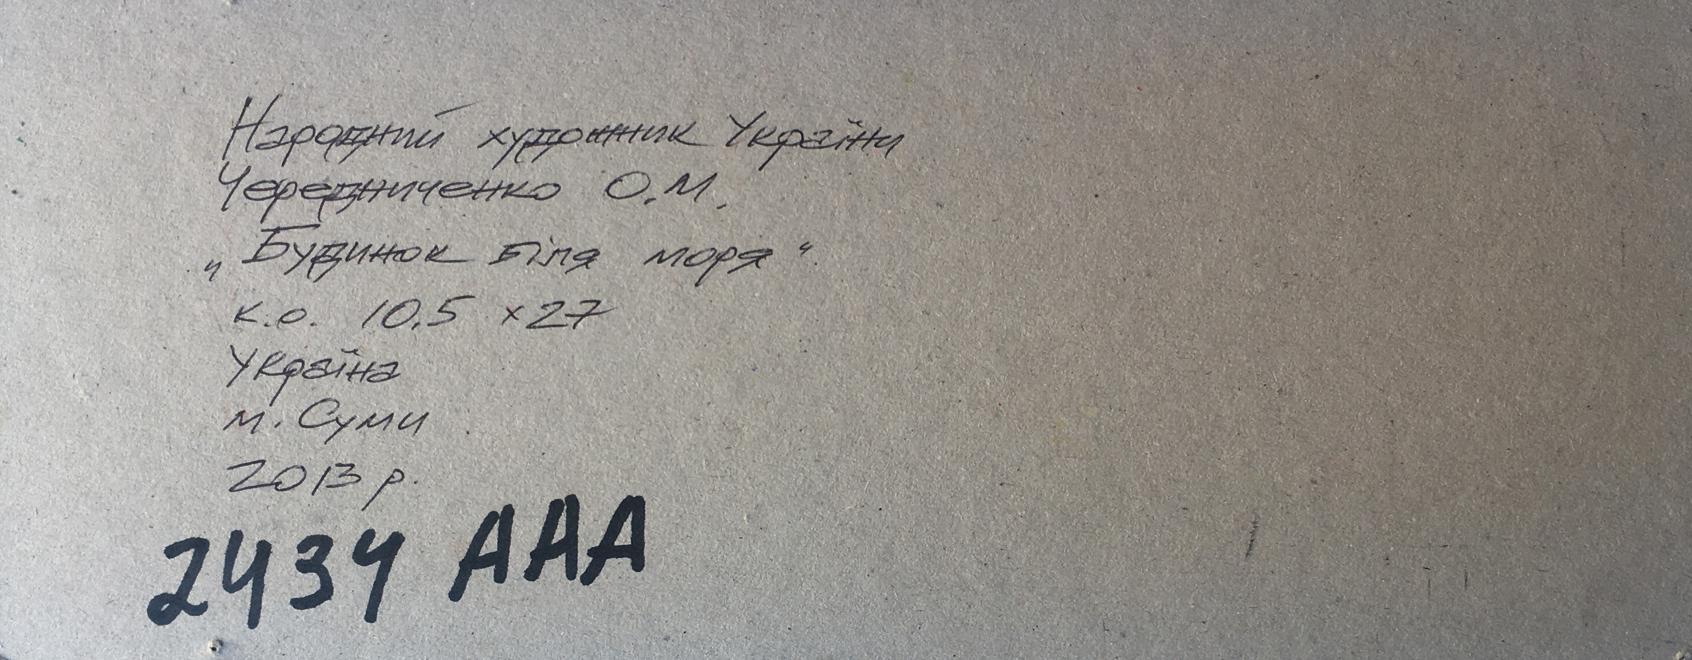 Народний художник України
Чередниченко О.М.
„Будинок біля моря“
к.о. 10,5 ×27
Україна
м. Суми
2013 р.
2434 ААА